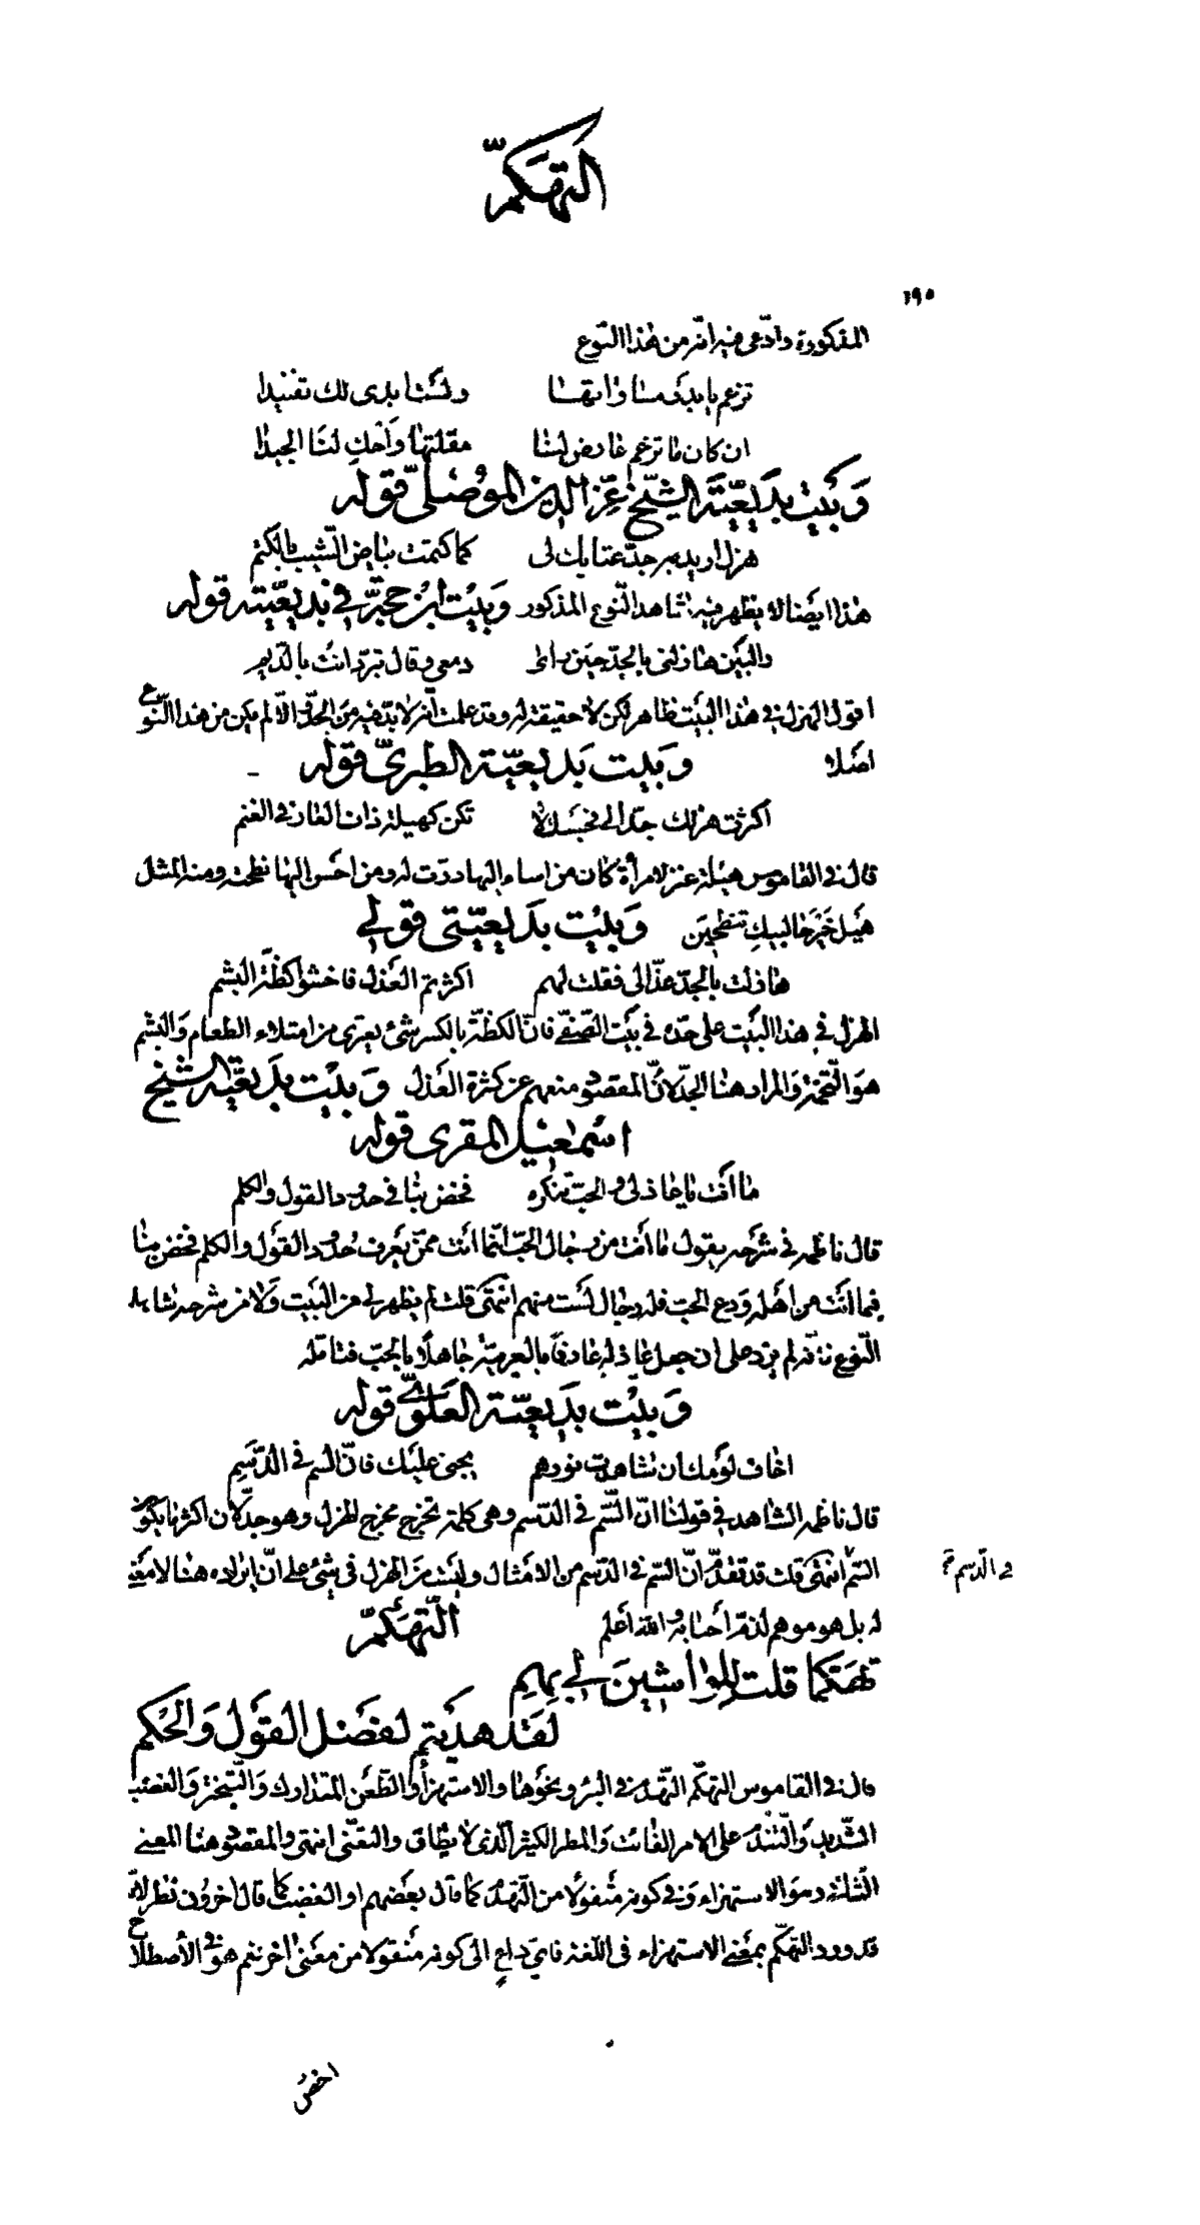 التهكّم
١٩٥
المذكورة وادّعى فيه انّه من هذا النّوع
تزعم يا بدر مساواتها ولست ابدى لك تفنيدا
ان كان ما تزعم عارض لنا مقلتها واحك لنا الجيدا
وَبَيت بديعيّة الشّيخ عزّ الدين الموصلى قوله
هزل اريد به جدّ عتابك لى كما كتمت بياض الشّيب بالكتم
هذا ايضا لا يظهر فيه شاهد النّوع المذكور وبيت ابن حجّة في بديعيّته قوله
والبين هازلنى بالجدّ حين راى دمعى وقال تبرّد انت بالدّيم
اقول الهزل في هذا البيت ظاهر لكن لا حقيقة له وقد علمت انّه لا بدّ فيه من الجدّ والّا لم يكن من هذا النّوع
اصلا وبيت بديعيّة الطبرىّ قوله
اكثرت هزلك جدّا لى فحسبك لا تكن كهيلة ذات الغار في الغنم
قال في القاموس هيلة عنز لامرأة كان من اساء اليها درّت له ومن احسن اليها نطحته ومنه المثل
هيل خير حالبيك تنطحين وبيت بديعيّتى قولي
هازلت بالجدّ عذّالى فقلت لهم اكثرتم العذل فاخشوا كظّة البشم
الهزل في هذا البيت على حدّه في بيت الصّفىّ فانّ الكظّة بالكسر شئ يعترى من امتلاء الطعام والبشم
هو التّخمة والمراد هنا الجدّ لانّ المقصود منعهم عن كثرة العذل وبيت بديعيّة الشيخ
اسمعيل المقرى قوله
ما انت يا عاذلى والحبّ تنكره فخض بنا في حدود القول والكلم
قال ناظمه في شرحه يقول ما انت من رجال الحبّ انّما انت ممّن يعرف حدود القول والكلم فخض بنا
فيما انت من اهله ودع الحبّ فله رجال لست منهم انتهى قلت لم يظهر لى من البيت ولا من شرحه شاهد
النّوع فانّه لم يزد على ان جعل عاذله عارفا بالعربيّة جاهلا بالحبّ فتامّله
وبيت بديعيّة العلوىّ قوله
اخاف لومك ان شاهدت نورهم يجنى عليك فانّ السّم في الدّسم
قال ناظمه الشاهد في قولنا انّ السّم في الدّسم وهى كلمة تخرج مخرج الهزل وهو جدّ لان اكثر ما يكون
السّم انتهى قلت قد تقدّم انّ السّم في الدّسم من الامثال وليست من الهزل فى شئ على انّ ايراده هنا لا معنى
في الدّسم
له بل هو موهم لذمّ احبابه والله اعلم التّهكّم
تهكّما قلت للواشين لي بهم
لقد هديتم لفضل القول والحكم
قال في القاموس التهكّم التّهدّم في البئر ونحوها والاستهزاء والطّعن المتدارك والتّبختر والغضب
الشّديد والتّندّم على الامر الفائت والمطر الكثير الّذى لا يطاق والتغنّى انتهى والمقصود هنا المعنى
الثّانى وهو الاستهزاء وفي كونه منقولا من التّهدّم كما قال بعضهم او الغضب كما قال اخرون نظر لانّه
قد ورد التهكّم بمعنى الاستهزاء فى اللّغة فاىّ داع الى كونه منقولا من معنى اخر نعم هو في الاصطلاح
اخصّ